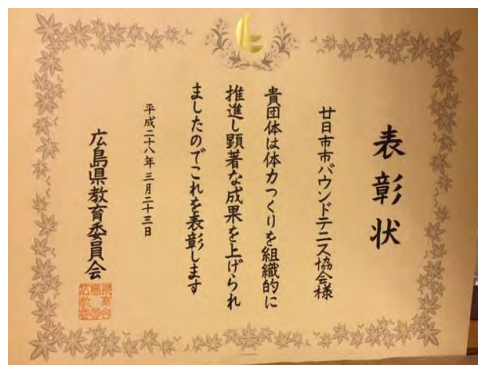 表彰状
廿日市市バウンドテニス協会様
貴団体は体力つくりを組織的に
推進し顕著な成果を上げられ
ましたのでこれを表彰します
平成二十八年三月二十三日
広島県教育委員会